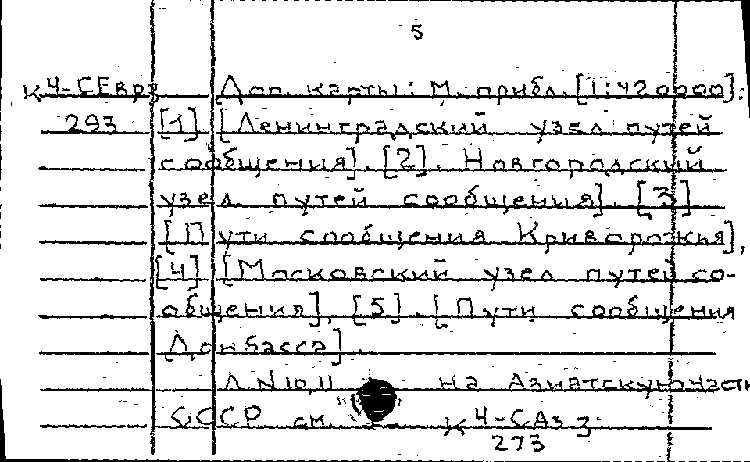 5
К 4-СЕвр3 Доп. карты: М. прибл. [1:420000]:
293 [1] [Ленинградский узел путей
сообщения]. [2]. Новгородский
узел путей сообщения]. [3]
[Пути сообщения Криворожья],
[4] [Московский узел путей со-
общения], [5]. [Пути сообщения
Донбасса].
Л N 10,11 на Азиатскую часть
СССР см. К 4-САз 3
273